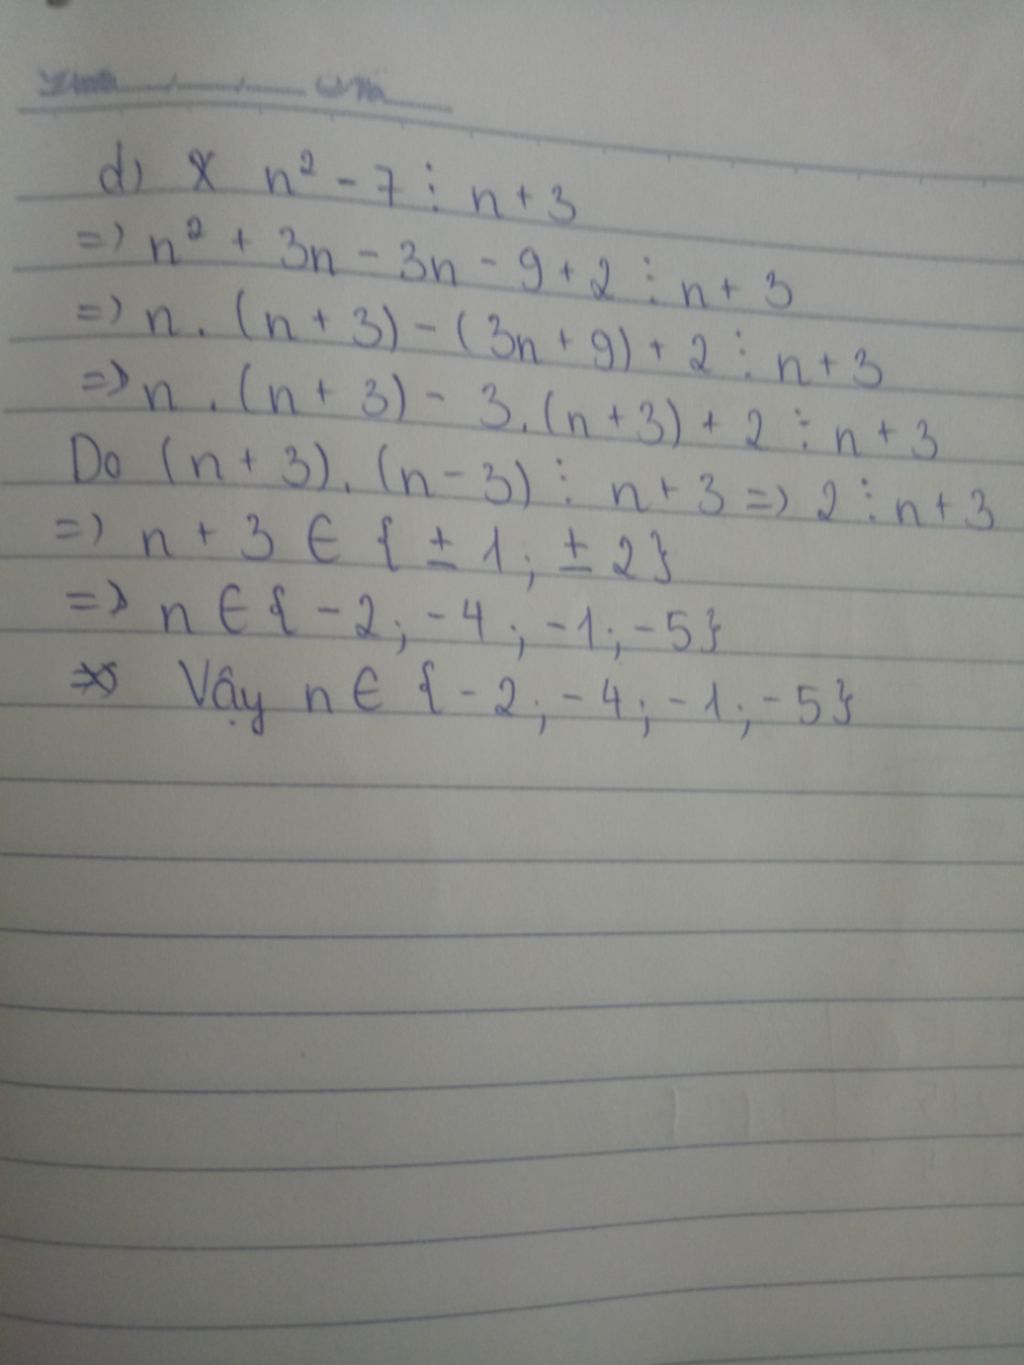 d) n² - 7 ⋮ n + 3
=) n² + 3n - 3n - 9 + 2 ⋮ n + 3
=) n . (n + 3) - (3n + 9) + 2 ⋮ n + 3
=) n . (n + 3) - 3. (n + 3) + 2 ⋮ n + 3
Do (n + 3) . (n - 3) ⋮ n + 3 =) 2 ⋮ n + 3
=) n + 3 ∈ { ± 1 ; ± 2}
=) n ∈ { - 2 ; - 4 ; - 1 ; - 5}
Vậy n ∈ { - 2 ; - 4 ; - 1 ; - 5}